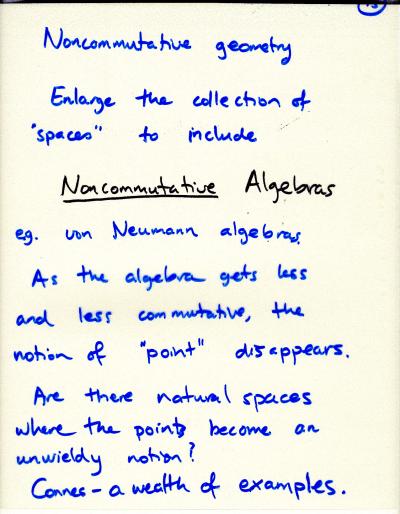 Noncommutative geometry
Enlarge the collection of
"spaces" to include
Noncommutative Algebras
eg. von Neumann algebras
As the algebra gets less
and less commutative, the
notion of "point" disappears.
Are there natural spaces
where the points become an
unwieldy notion?
Connes - a wealth of examples.